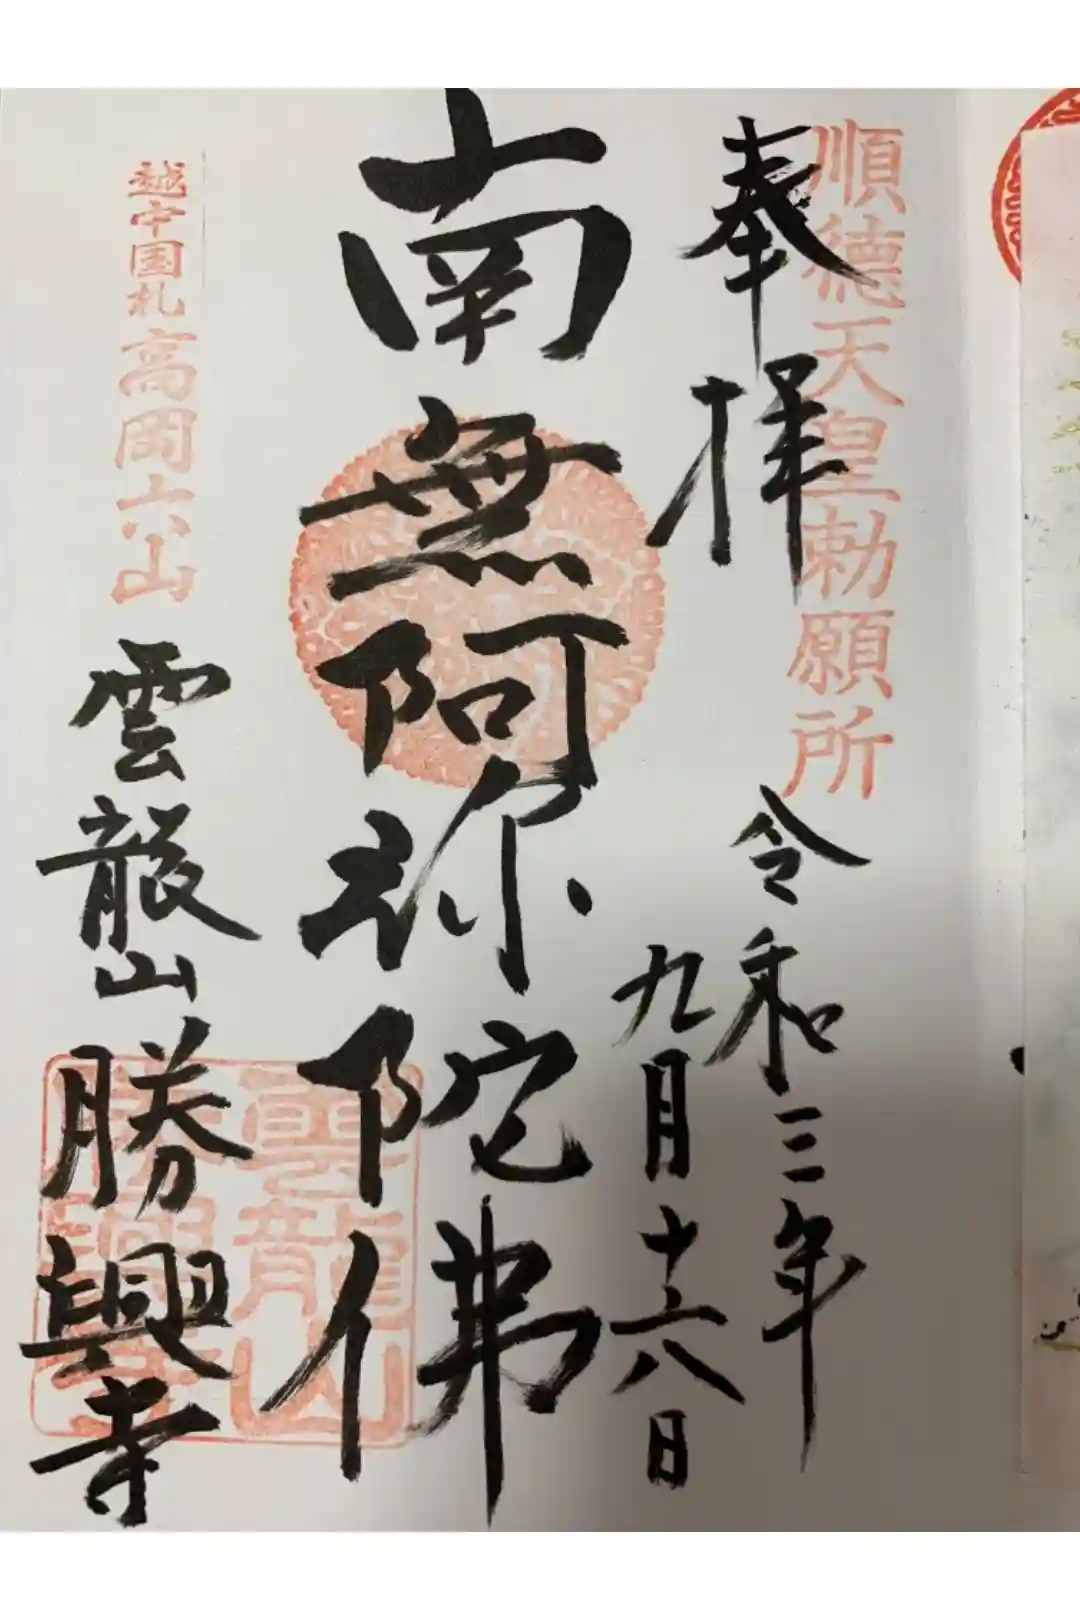 順徳天皇勅願所
奉拝
令和三年
九月十六日
南無阿弥陀佛
越中国札高岡六山
雲龍山勝興寺
雲龍山
勝興寺